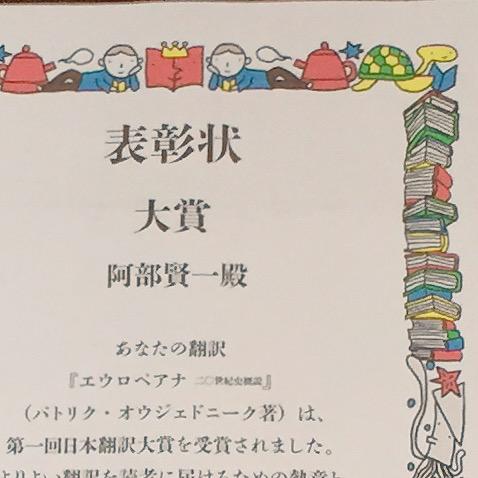 表彰状
大賞
阿部賢一殿
あなたの翻訳
『エウロペアナ 二〇世紀史概説』
（パトリク・オウジェドニーク著）は、
第一回日本翻訳大賞を受賞されました。
よりよい翻訳を読者に届けるための熱意と